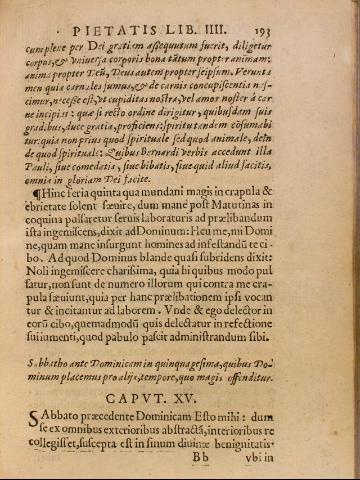 PIETATIS LIB. IIII. 193
cum plene per Dei gratiam assequutum fuerit, diligetur
corpus, & vniuersa corporis bona tātum propter animam:
anima propter Deū, Deus autem propter seipsum. Verunta
men quia carnales sumus, & de carnis concupiscentia na-
scimur, necesse est, vt cupiditas nostra, vel amor noster à car
ne incipiat: quæ si recto ordine dirigitur, quibusdam suis
gradibus, duce gratia, proficiens: spiritu tandem cōsumabi
tur: quia non prius quod spirituale sed quod animale, dein
de quod spirituale. Quibus Bernardi verbis accedunt illa
Pauli, siue comedatis, siue bibatis, siue quid aliud facitis,
omnia in gloriam Dei facite.
¶Hinc feria quinta qua mundani magis in crapula &
ebrietate solent sæuire, dum mane post Matutinas in
coquina pulsaretur seruis laboratoris ad prælibandum
ista ingemiscens, dixit ad Dominum: Heu me, mi Domi
ne, quam mane insurgunt homines ad infestandū te ci-
bo. Ad quod Dominus blande quasi subridens dixit:
Noli ingemiscere charissima, quia hi quibus modo pul
satur, non sunt de numero illorum qui contra me cra-
pula sæuiunt, quia per hanc prælibationem ipsi vocan
tur & incitantur ad laborem. Vnde & ego delector in
eorū cibo, quemadmodū quis delectatur in refectione
sui iumenti, quod pabulo pascit administrandum sibi.
Sabbatho ante Dominicam in quinquagesima, quibus Do-
minum placemus pro alijs, tempore, quo magis offenditur.
CAPVT. XV.
SAbbato præcedente Dominicam Esto mihi: dum
se ex omnibus exterioribus abstractā, interioribus re
collegisset, suscepta est in sinum diuinæ benignitatis.
Bb vbi in